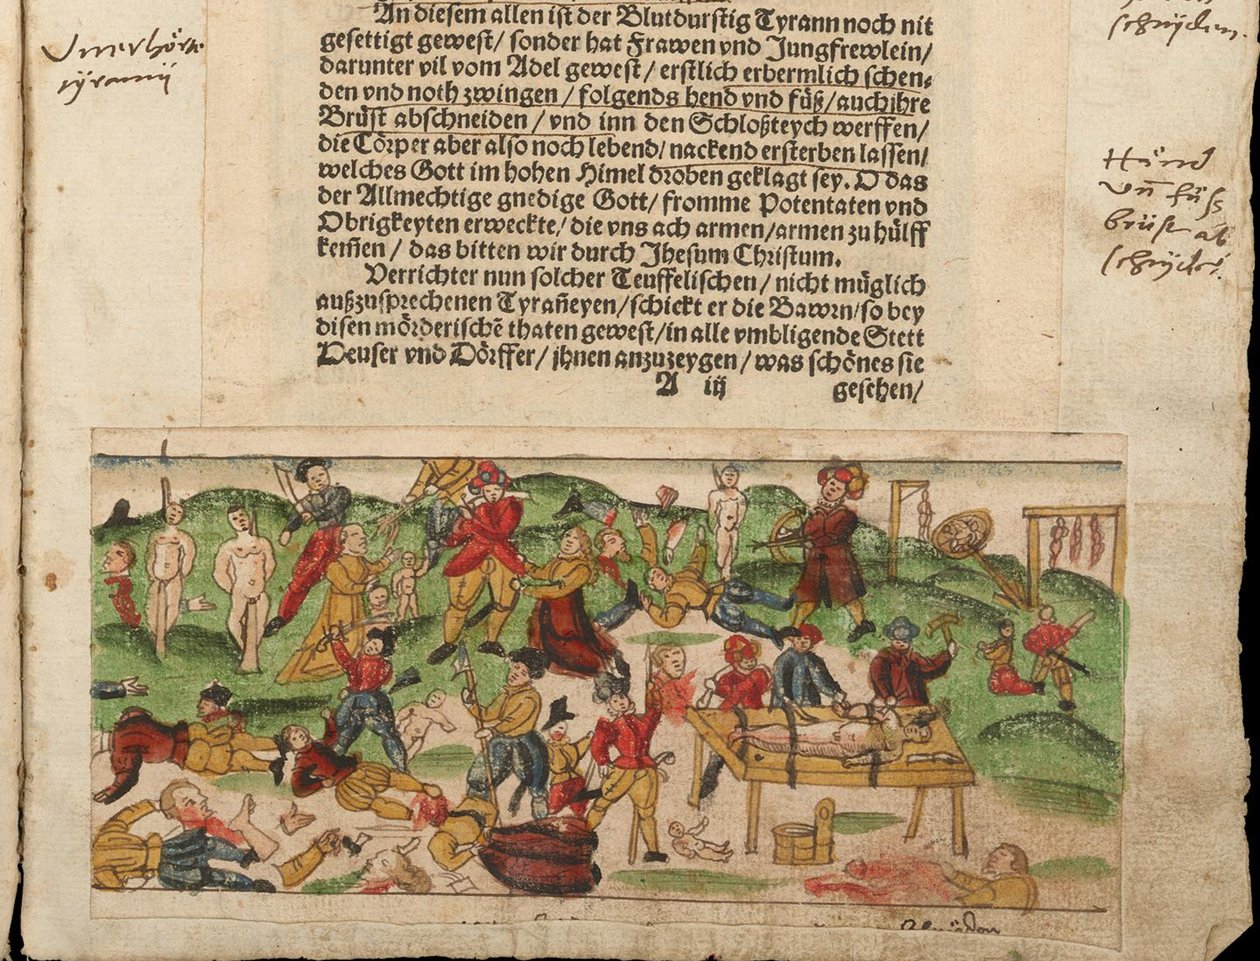 An diesem allen ist der Blutdurstig Tyrann noch nit
gesettigt gewest/ sonder hat Frawen vnd Jungfrewlein/
darunter vil vom Adel gewest/ erstlich erbermlich schen⸗
den vnd noth zwingen/ folgends hend vnd füß/ auch jhre
Brüst abschneiden/ vnd inn den Schloßteych werffen/
die Cörper aber also noch lebend/ nackend ersterben lassen/
welches Gott im hohen Himel droben geklagt sey. O das
der Allmechtige gnedige Gott/ fromme Potentaten vnd
Obrigkeyten erweckte/ die vns ach armen/ armen zu hülff
kem̄en/ das bitten wir durch Jhesum Christum.
Verrichter nun solcher Teuffelischen/ nicht müglich
außzusprechenen Tyrañeyen/ schickt er die Bawrn/ so bey
disen mörderischē thaten gewest/ in alle vmbligende Stett
Heuser vnd Dörffer/ jhnen anzuzeygen/ was schönes sie
A iij gesehen/
Vnerhörte
tÿrannÿ
schnÿden.
Hännd
vn̄ füss
brüst ab
schnÿden.